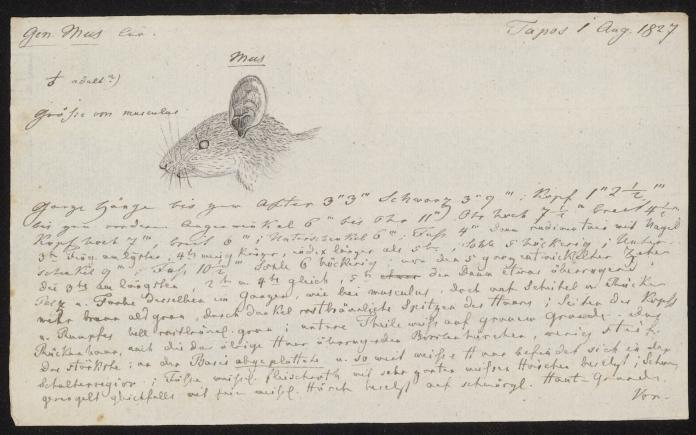 Gen. Mus Cuv. Tapos 1 Aug. 1827
Mus
adult
Größe von musculus
Ganze Länge bis zum After 3" 3''' Schwanz 3" 9''' ; Kopf 1" 2 1/2'''
bis zum vordern Augenwinkel 6''' bis Ohr 11''' Ohr hoch 7 1/2''' breit 4 1/2'''
Kopf hoch 7''', breit 6''' ; Unterschenkel 6''', Fuß 4''' Daum rudimentär mit Nagel
3te am längsten, 4te wenig kürzer, index länger als 5te, Sohle 5 höckerig ; Unter-
schenkel 9''' ; Fuß 10 1/2''' Sohle 6 höckerig ; von den 5 Zehen
die 3te am längsten, 2te u. 4te gleich, 5te die Daum etwas überragend ;
Pelz u. Farbe desselben im Ganzen, wie bei musculus, doch auf Scheitel u. Rücken
mehr braun als grau, durch dunkel rostbräunliche Spitzen des Haars ; Seiten des Kopfs
u. Rumpfes hell rostbräunl. grau ; untere Theile weiß auf grauem Grunde. Das
Rückenhaar, mit die das übrige Haar überragenden Borstenhärchen, wenig steif.
Das stärkste : an der Basis abgeplattete u. so weit weiße Haar befindet sich in der
Schulterregion ; Füße weißl. fleischroth mit sehr zarten weißen Härchen besetzt ; Schwanz
geringelt gleichfalls mit fein weißl. Härch besetzt auf schwärzl. Haut-Grunde.
Vor-